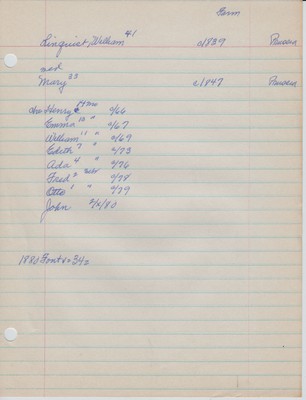 Germ
Linquist, William 41 c1839 Prussia
and
Mary 33 c1847 Prussia
Henry 14 c/66
Emma 13 " c/67
William 11 " c/69
Edith 7 " c/73
Ada 4 " c/76
Fred 2 c/78
Otto 1 " c/79
John 2/2/80
1880 Font 34